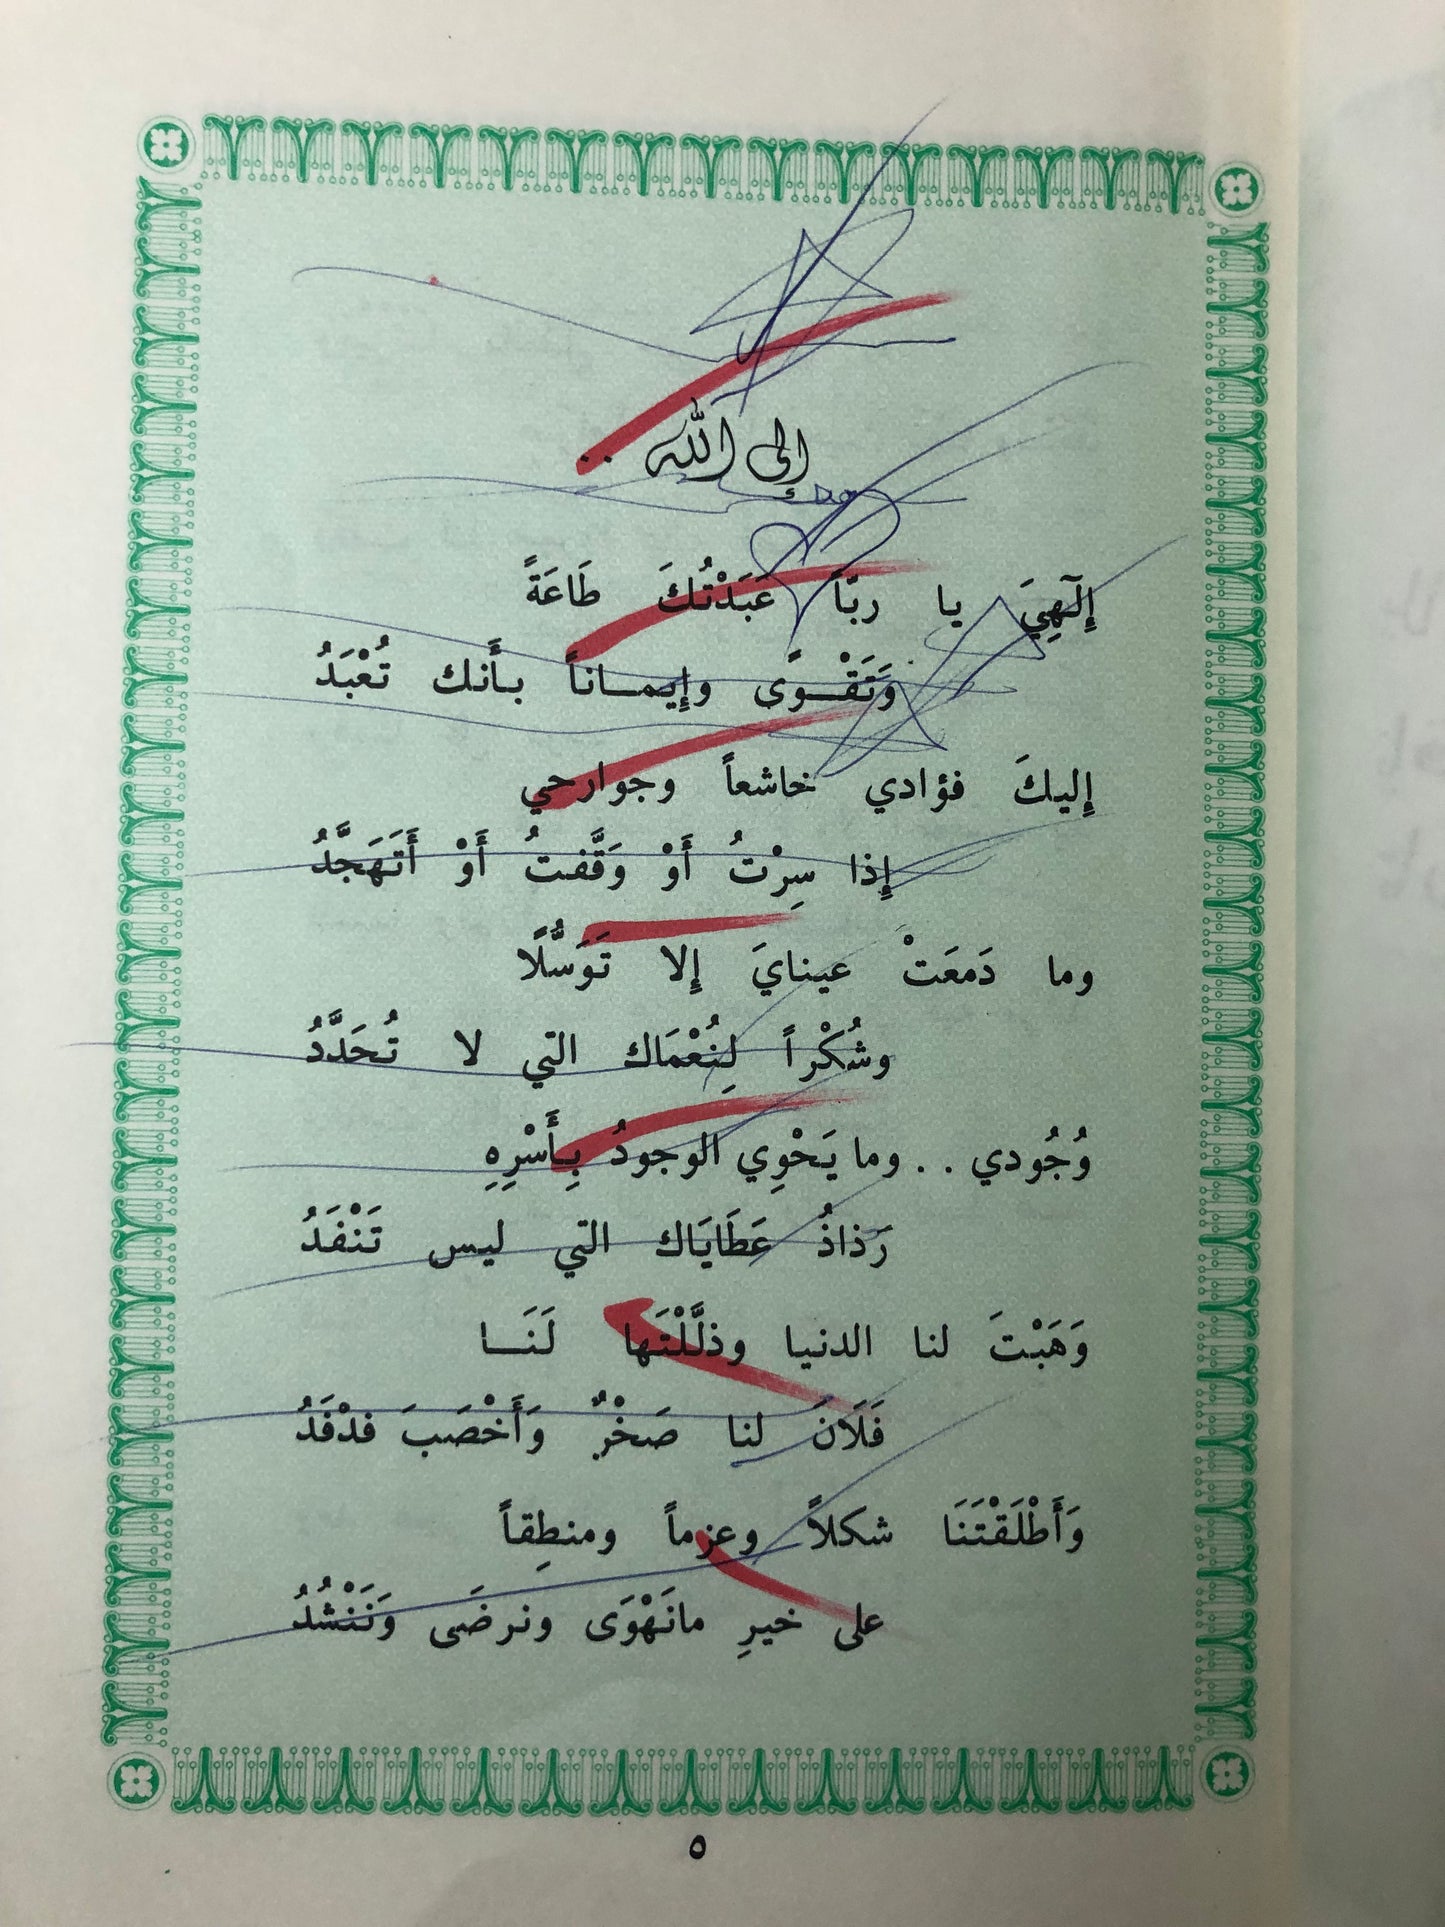 إلى الله ..
إِلَهِيَ يا ربّاً عَبَدْتُكَ طَاعَةً
وَتَقْــوًى وإِيمــاناً بـأَنك تُعْبَدُ
إِليكَ فؤادي خاشعاً وجوارحي
إِذا سِرْتُ أَوْ وَقَّفتُ أَوْ أَتَهَجَّدُ
وما دَمعَتْ عينايَ إِلا تَوَسُّلًا
وشُكْراً لِنُعْمَاك التي لا تُحَدَّدُ
وُجُودي . . وما يَحْوِي الوجودُ بِأَسْرِهِ
رَذاذُ عَطَايَاك التي ليس تَنْفَدُ
وَهَبْتَ لنا الدنيا وذلَّلْتَها لَنَــا
فَلَانَ لنا صَخْرٌ وَأَخْصَبَ فدْفَدُ
وَأَطْلَقْتَنَا شكلاً وعزماً ومنطِقاً
على خيرِ مانَهْوَى ونرضَى وَنَنْشُدُ
٥